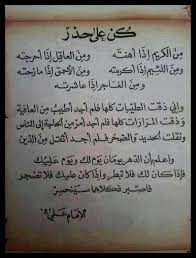 كن على حذر
من الكريم إذا أهنته ومن العاقل إذا أحرجته
ومن اللئيم إذا أكرمته ومن الأحمق إذا مازحته
ومن الفاجر إذا عاشرته
وإني ذقت الطيبات كلها فلم أجد أطيب من العافية
وذقت المرارات كلها فلم أجد أمر من الحاجة إلى الناس
ونقلت الحديد والصخر فلم أجد أثقل من الدين
واعلم أن الدهر يومان يوم لك ويوم عليك
فإذا كان لك فلا تبطر وإذا كان عليك فلا تضجر
فاصبر فكلاهما سينحسر
الإمام علي